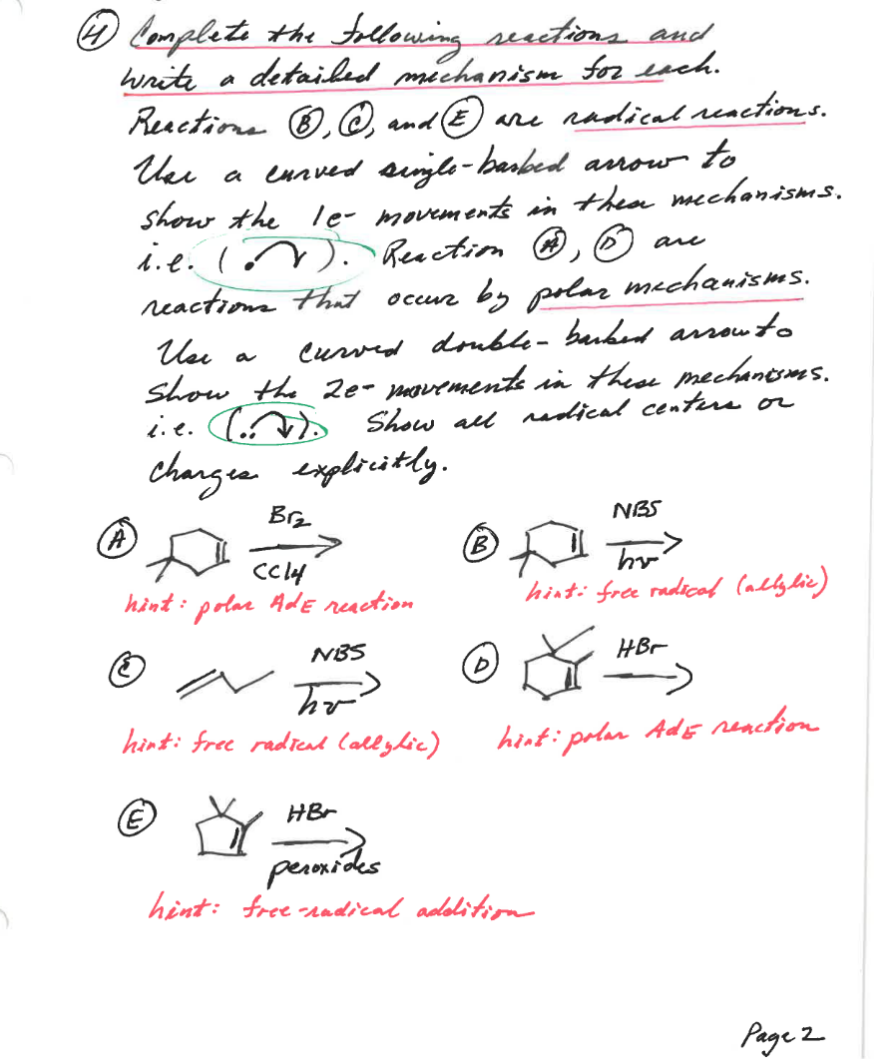 4 Complete the following reactions and
write a detailed mechanism for each.
Reactions B, C, and E are radical reactions.
Use a curved single-barbed arrow to
show the 1e- movements in these mechanisms.
i.e. ( ). Reaction A, D are
reactions that occur by polar mechanisms.
Use a curved double-barbed arrow to
Show the 2e- movements in these mechanisms.
i.e. ( ). Show all radical centers or
charges explicitly.
A Br2
CCl4
hint: polar AdE reaction
B NBS
hν
hint: free radical (allylic)
C NBS
hν
hint: free radical (allylic)
D HBr
hint: polar AdE reaction
E HBr
peroxides
hint: free-radical addition
Page 2